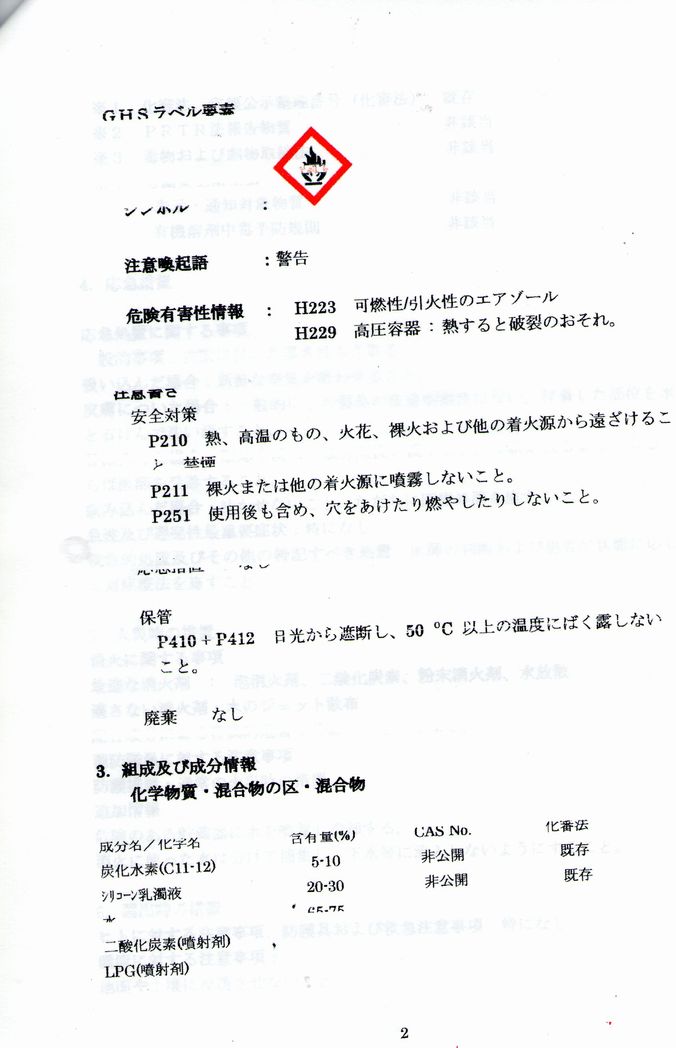 GHSラベル要素
シンボル :
注意喚起語 : 警告
危険有害性情報 : H223 可燃性/引火性のエアゾール
H229 高圧容器：熱すると破裂のおそれ。
注意書き
安全対策
P210 熱、高温のもの、火花、裸火および他の着火源から遠ざけるこ
と 禁煙
P211 裸火または他の着火源に噴霧しないこと。
P251 使用後も含め、穴をあけたり燃やしたりしないこと。
応急措置 なし
保管
P410＋P412 日光から遮断し、50 ℃ 以上の温度にばく露しない
こと。
廃棄 なし
3. 組成及び成分情報
化学物質・混合物の区・混合物
成分名／化学名 含有量(%) CAS No. 化審法
炭化水素(C11-12) 5-10 非公開 既存
シリコーン乳濁液 20-30 非公開 既存
水 65-75
二酸化炭素(噴射剤)
LPG(噴射剤)
2